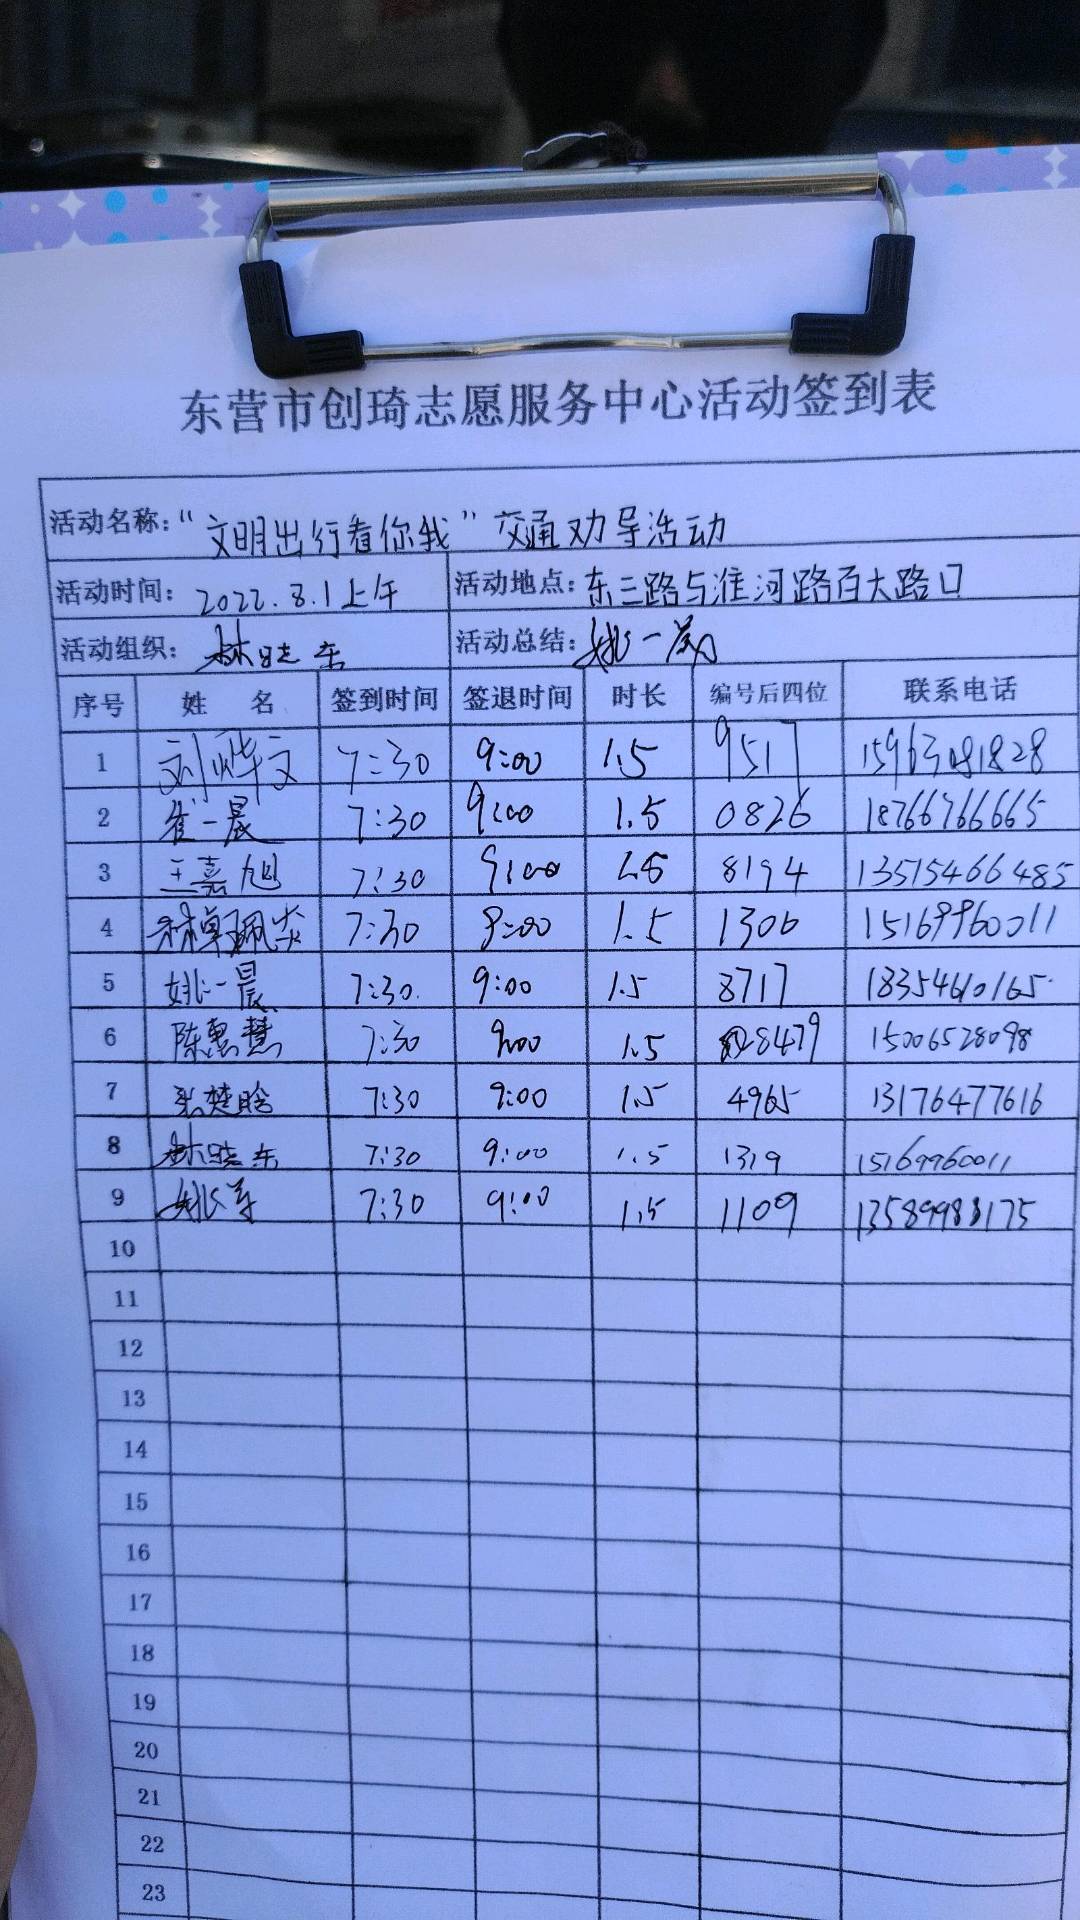 东营市创琦志愿服务中心活动签到表
活动名称：“文明出行看你我”交通劝导活动
活动时间： 2022.8.1上午 活动地点：东三路与淮河路百大路口
活动组织： 林晓东 活动总结： 姚一
序号 姓 名 签到时间 签退时间 时长 编号后四位 联系电话
1 刘烨文 7:30 9:00 1.5 9517 15963081828
2 崔一晨 7:30 9:00 1.5 0826 18766766665
3 王嘉旭 7:30 9:00 1.5 8194 13515466485
4 林卓珮 7:30 9:00 1.5 1306 15169960011
5 姚一晨 7:30 9:00 1.5 8717 18354610165
6 陈惠慧 7:30 9:00 1.5 8479 15006528098
7 张楚晗 7:30 9:00 1.5 4965 13176477616
8 林晓东 7:30 9:00 1.5 1319 15169960011
9 姚 7:30 9:00 1.5 1109 13589983175
10
11
12
13
14
15
16
17
18
19
20
21
22
23